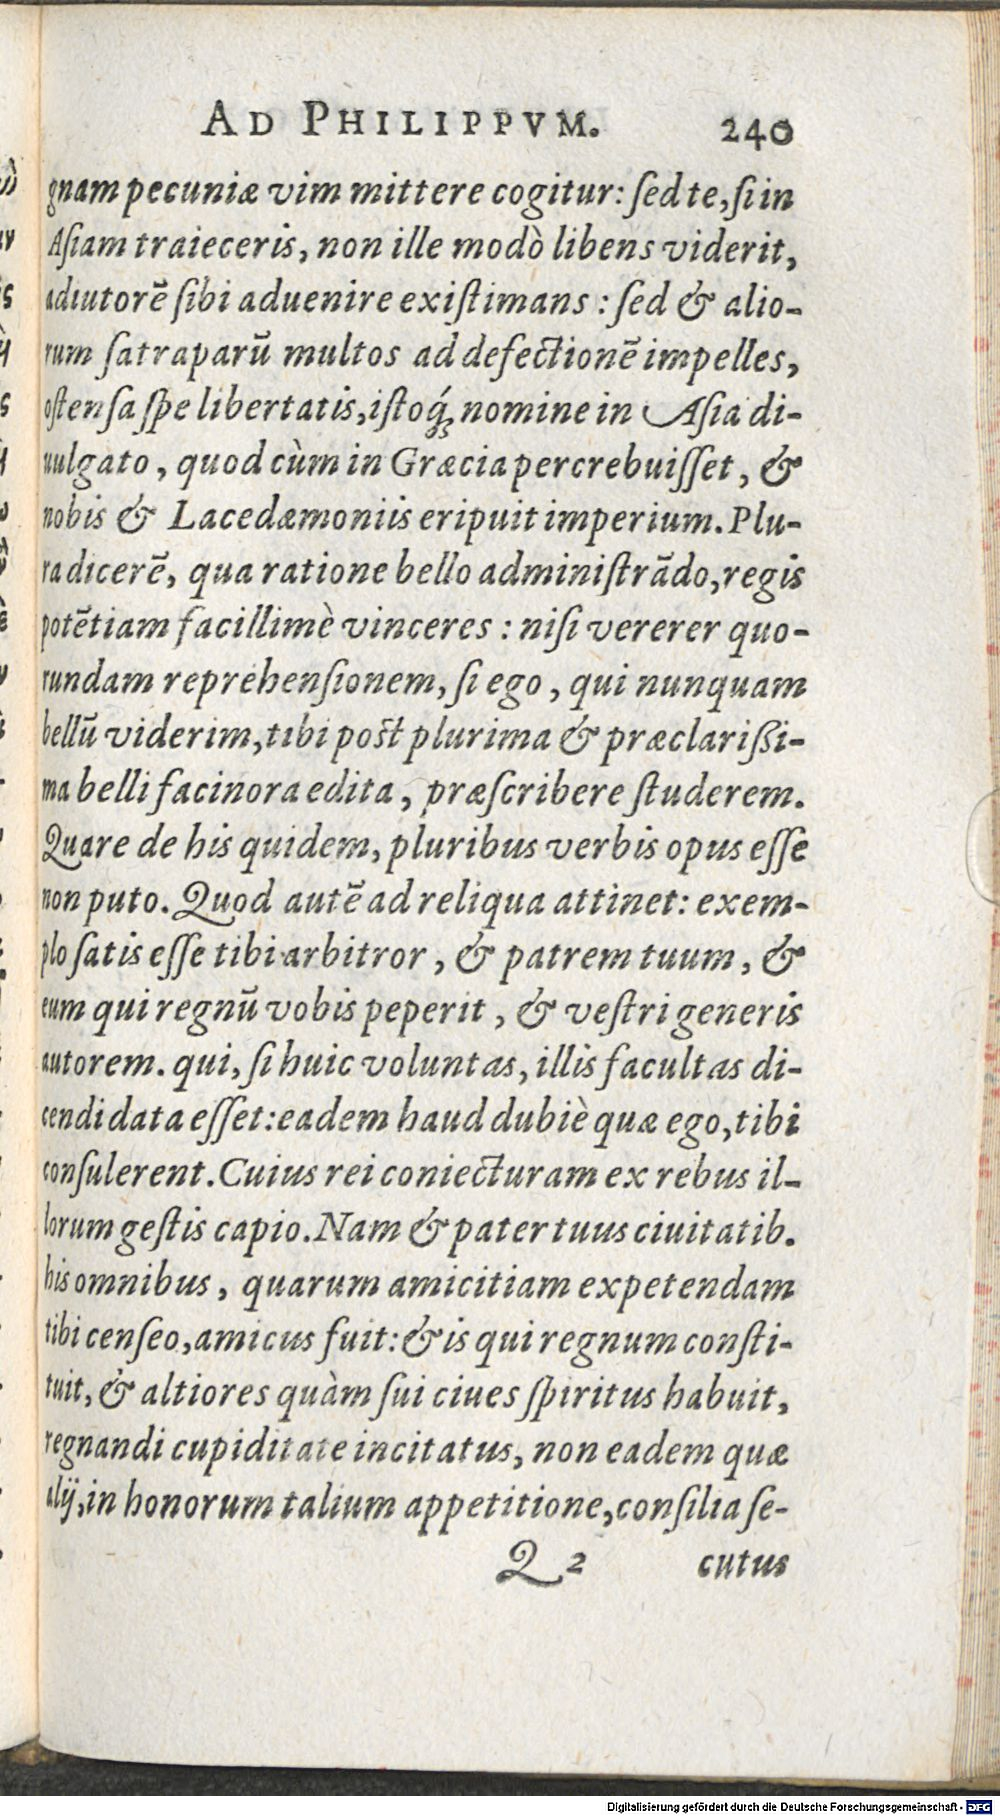 AD PHILIPPVM. 240
gnam pecuniæ vim mittere cogitur: ſed te, ſi in
Aſiam traieceris, non ille modò libens viderit,
adiutorē ſibi aduenire exiſtimans : ſed & alio-
rum ſatraparū multos ad defectionē impelles,
oſtenſa ſpe libertatis, iſtoq́ꝫ nomine in Aſia di-
uulgato, quod cùm in Græcia percrebuiſſet, &
nobis & Lacedæmoniis eripuit imperium. Plu-
ra dicerē, qua ratione bello adminiſtrādo, regis
potētiam facillimè vinceres : niſi vererer quo-
rundam reprehenſionem, ſi ego, qui nunquam
bellū viderim, tibi poſt plurima & præclarißi-
ma belli facinora edita, præſcribere ſtuderem.
Quare de his quidem, pluribus verbis opus eſſe
non puto. Quod autē ad reliqua attinet: exem-
plo ſatis eſſe tibi arbitror, & patrem tuum, &
eum qui regnū vobis peperit, & veſtri generis
autorem. qui, ſi huic voluntas, illis facultas di-
cendi data eſſet: eadem haud dubiè quæ ego, tibi
conſulerent. Cuius rei coniecturam ex rebus il-
lorum geſtis capio. Nam & pater tuus ciuitatib.
his omnibus, quarum amicitiam expetendam
tibi cenſeo, amicus fuit: & is qui regnum conſti-
tuit, & altiores quàm ſui ciues ſpiritus habuit,
regnandi cupiditate incitatus, non eadem quæ
alij, in honorum talium appetitione, conſilia ſe-
Q 2 cutus
Digitalisierung gefördert durch die Deutsche Forschungsgemeinschaft - DFG